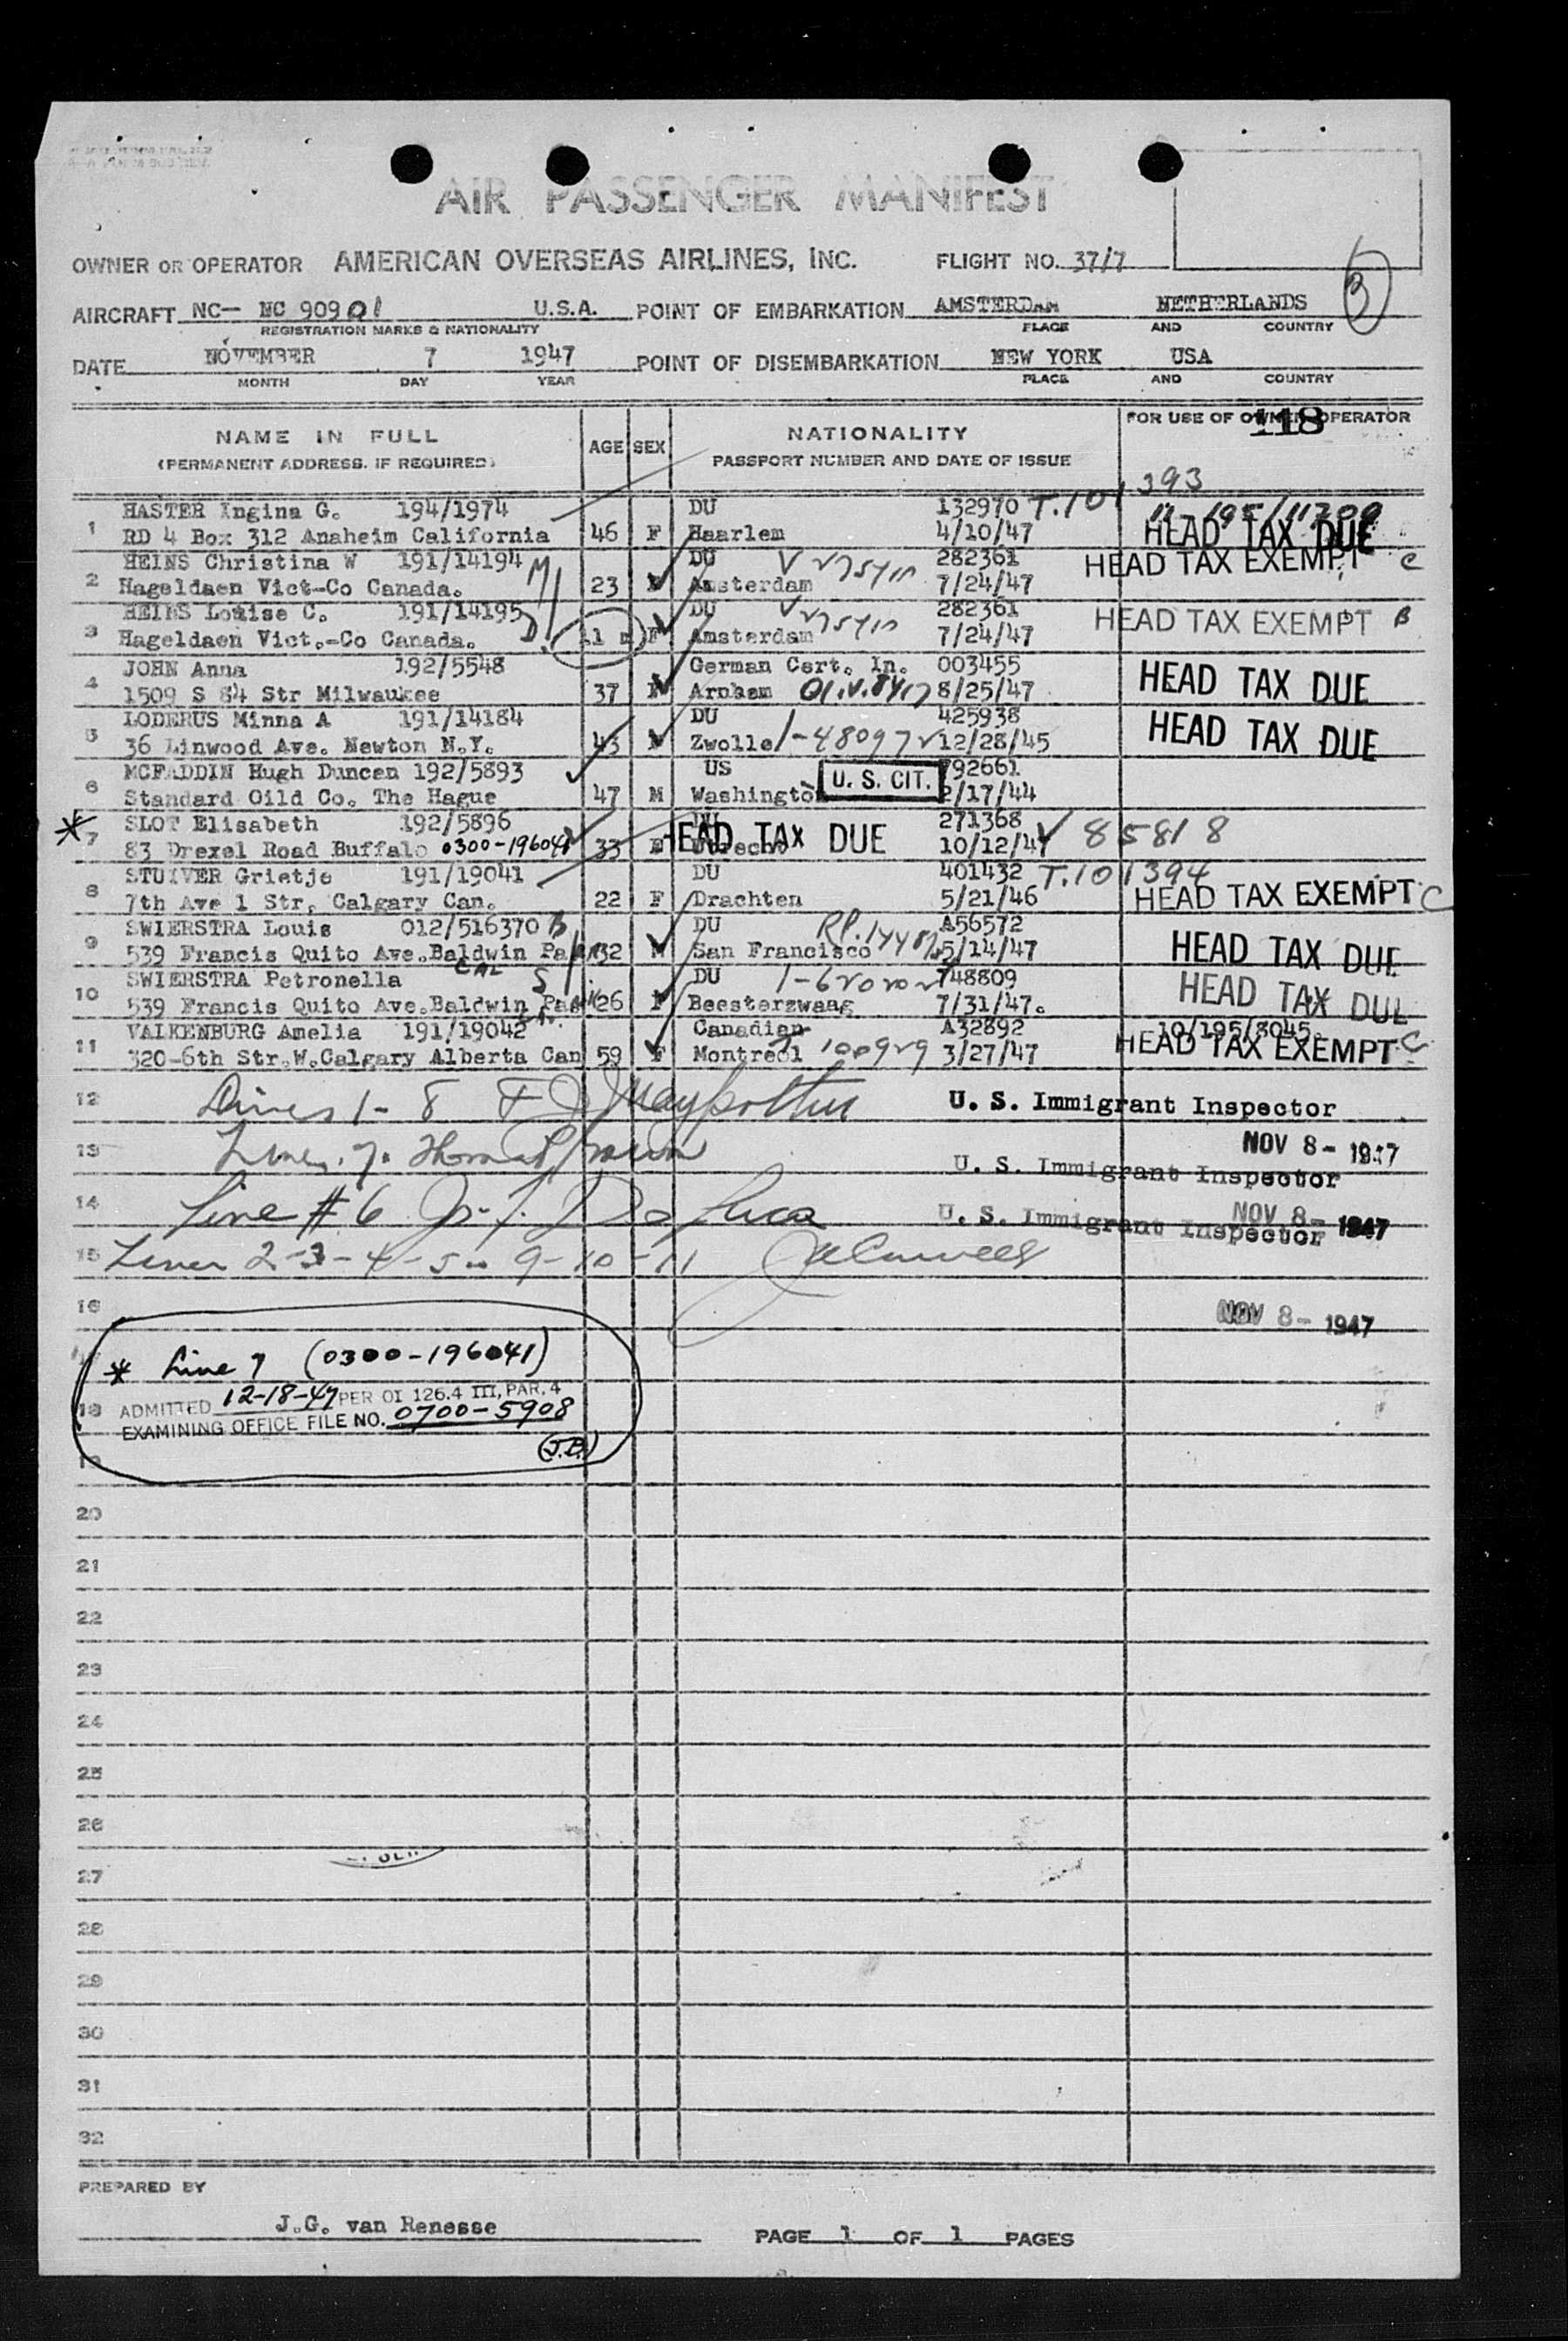 AIR PASSENGER MANIFEST
OWNER OR OPERATOR AMERICAN OVERSEAS AIRLINES, INC. FLIGHT NO. 37/7
3
AIRCRAFT NC- NC 90901 U.S.A. POINT OF EMBARKATION AMSTERDAM NETHERLANDS
REGISTRATION MARKS & NATIONALITY PLACE AND COUNTRY
DATE NOVEMBER 7 1947 POINT OF DISEMBARKATION NEW YORK USA
MONTH DAY YEAR PLACE AND COUNTRY
NAME IN FULL AGE SEX NATIONALITY FOR USE OF OWNER OPERATOR
118
(PERMANENT ADDRESS, IF REQUIRED) PASSPORT NUMBER AND DATE OF ISSUE
HASTER Ingina G. 194/1974 DU 132970 T.101393
1 RD 4 Box 312 Anaheim California 46 F Haarlem 4/10/47 HEAD TAX DUE
HEINS Christina W 191/14194 DU 282361 HEAD TAX EXEMPT C
2 Hageldaen Vict-Co Canada. 23 Amsterdam 7/24/47
HEINS Louise C. 191/14195 DU 282361 HEAD TAX EXEMPT B
3 Hageldaen Vict.-Co Canada. 11 m F Amsterdam 7/24/47
JOHN Anna 192/5548 German Cert. In. 003455
4 1509 S 84 Str Milwaukee 37 Arnhem 8/25/47 HEAD TAX DUE
LODERUS Minna A 191/14184 DU 425938
5 36 Linwood Ave. Newton N.Y. 43 Zwolle 12/28/45 HEAD TAX DUE
MCFADDIN Hugh Duncan 192/5893 US U. S. CIT. 792661
6 Standard Oild Co. The Hague 47 M Washington 2/17/44
* SLOT Elisabeth 192/5896 DU 271368 V 85818
7 83 Drexel Road Buffalo 0300-196041 33 HEAD TAX DUE 10/12/47
STUIVER Grietje 191/19041 DU 401432 T.101394
8 7th Ave 1 Str, Calgary Can. 22 F Drachten 5/21/46 HEAD TAX EXEMPT C
SWIERSTRA Louis 012/516370 DU A56572
9 539 Francis Quito Ave.Baldwin Park 32 M San Francisco 5/14/47 HEAD TAX DUE
CAL
SWIERSTRA Petronella DU 748809
10 539 Francis Quito Ave.Baldwin Park 26 F Beesterzwaag 7/31/47. HEAD TAX DUE
VALKENBURG Amelia 191/19042 Canadian A32892 10/195/8045
11 320-6th Str.W.Calgary Alberta Can 59 F Montreol 3/27/47 HEAD TAX EXEMPT C
12 Lines 1-8 U. S. Immigrant Inspector
NOV 8- 1947
13 Line 7. U. S. Immigrant Inspector
14 Line #6 U. S. Immigrant Inspector
NOV 8- 1947
15 Lines 2-3-4-5- 9-10-11
16 NOV 8- 1947
* Line 7 (0300-196041)
18 ADMITTED 12-18-47 PER OI 126.4 III, PAR. 4
EXAMINING OFFICE FILE NO. 0700-5908
(J.B.)
19
20
21
22
23
24
25
26
27
28
29
30
31
32
PREPARED BY
J.G. van Renesse
PAGE 1 OF 1 PAGES